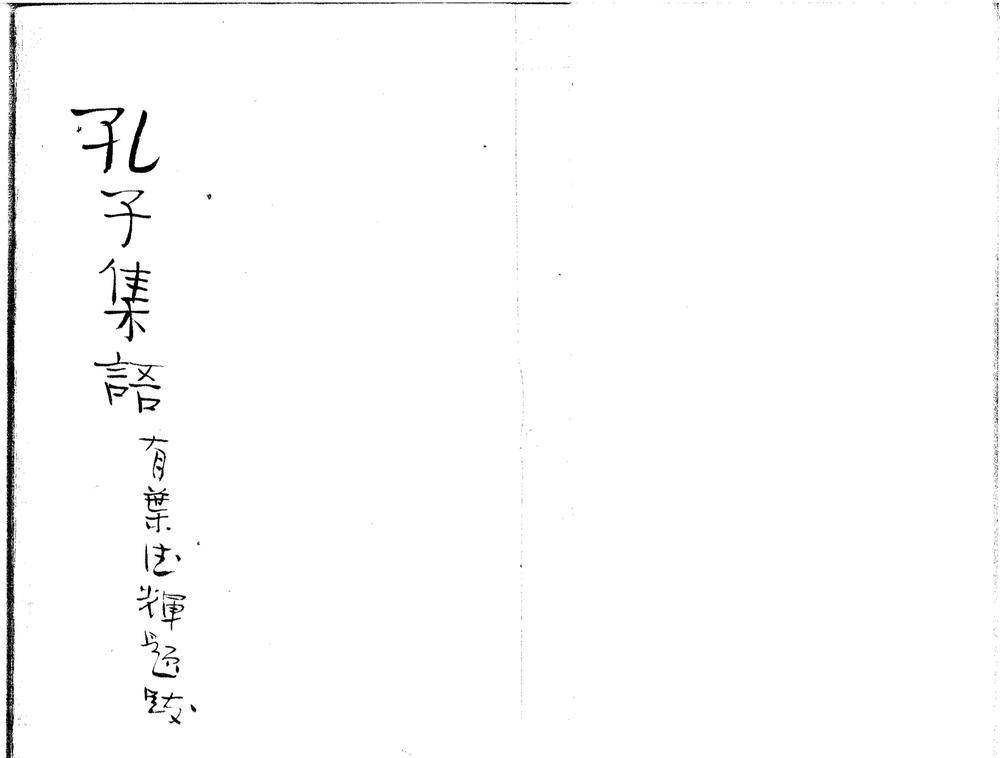 孔子集語
有葉德輝題跋